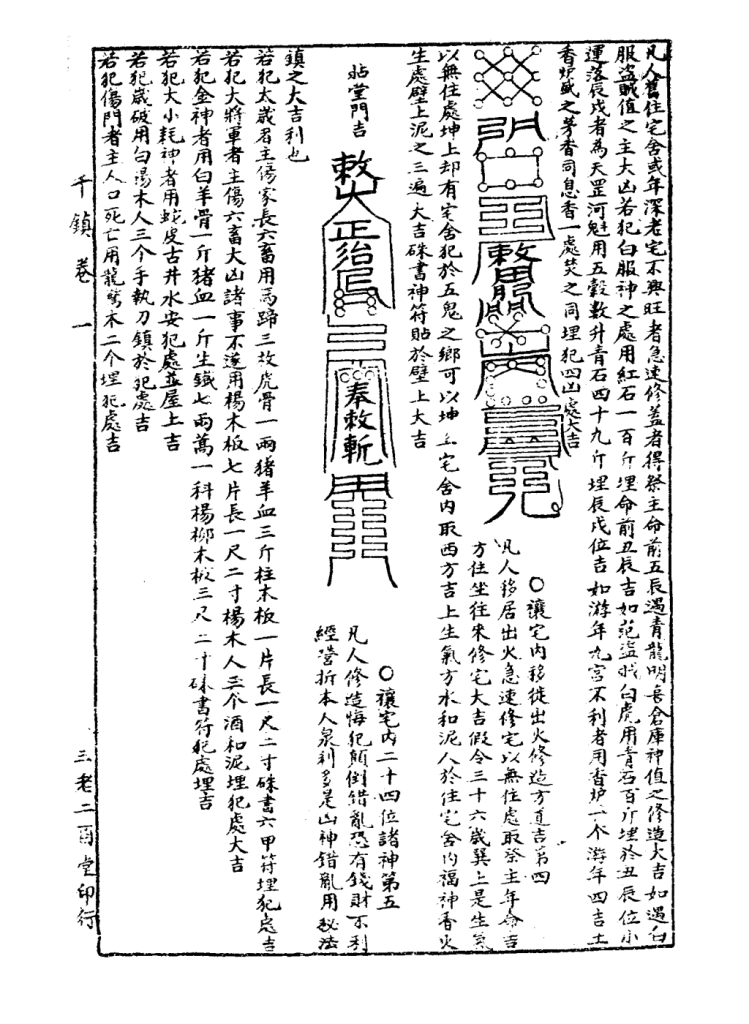 凡人舊住宅舍或年深老宅不興旺者急速修蓋者得祭主命前五辰遇青龍明喜倉庫神值之修造大吉如遇白
服盜賊值之主大凶若犯白服神之處用紅石一百斤埋命前丑辰吉如犯盜賊白虎用青石百斤埋於丑辰位小
運落辰戌者為天罡河魁用五穀數升青石四十九斤埋辰戌位吉如游年九宮不利者用香炉一个游年四吉土
香炉盛之芳香同息香一處焚之同埋犯四凶處大吉
敕
○禳宅內移徙出火修造方道吉第四
凡人移居出火急速修宅以無住處取祭主年命吉
方住坐往來修宅大吉假令三十六歲巽上是生氣
以無住處坤上却有宅舍犯於五鬼之鄉可以坤上宅舍內取西方吉上生氣方水和泥人於住宅舍內福神香火
生處壁上泥之三遍大吉硃書神符貼於壁上大吉
帖堂門吉
敕
正治
奉敕斬
○禳宅內二十四位諸神第五
凡人修造悔犯顛倒錯亂恐有錢財不利
經營折本人泉利多是凶神錯亂用秘法
鎮之大吉利也
若犯太歲君主傷家長六畜用馬蹄三故虎骨一兩猪羊血三斤柱木板一片長一尺二寸硃書六甲符埋犯處吉
若犯大將軍者主傷六畜大凶諸事不遂用楊木板七片長一尺二寸楊木人三个酒和泥埋犯處大吉
若犯金神者用白羊骨一斤猪血一斤生鐵七兩萬一科楊柳木板三尺二寸硃書符犯處埋吉
若犯大小耗神者用蛇皮古井水安犯處並屋上吉
若犯歲破用白湯木人三个手執刀鎮於犯處吉
若犯傷門者主人口死亡用龍鸞木二个埋犯處吉
千鎮卷一
三老二酉堂印行